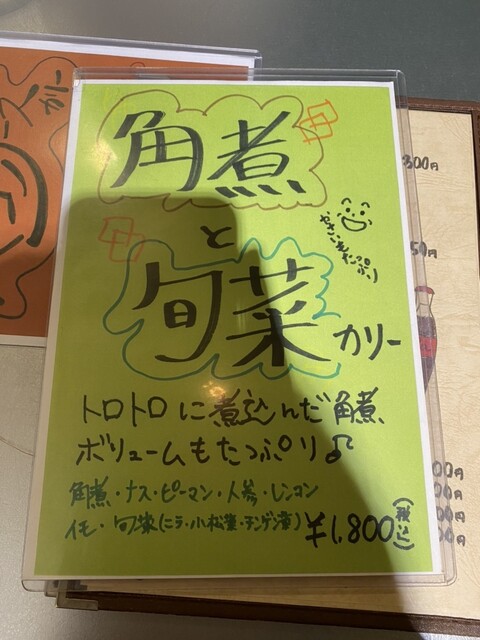 角煮
と
旬菜カリー
やさいもたっぷり
トロトロに煮込んだ角煮
ボリュームもたっぷり♪
角煮・ナス・ピーマン・人参・レンコン
イモ・旬菜(ニラ・小松菜・チンゲン菜)
¥1,800(税込)
カリー
300円
50円
00円
00円
00円
00円